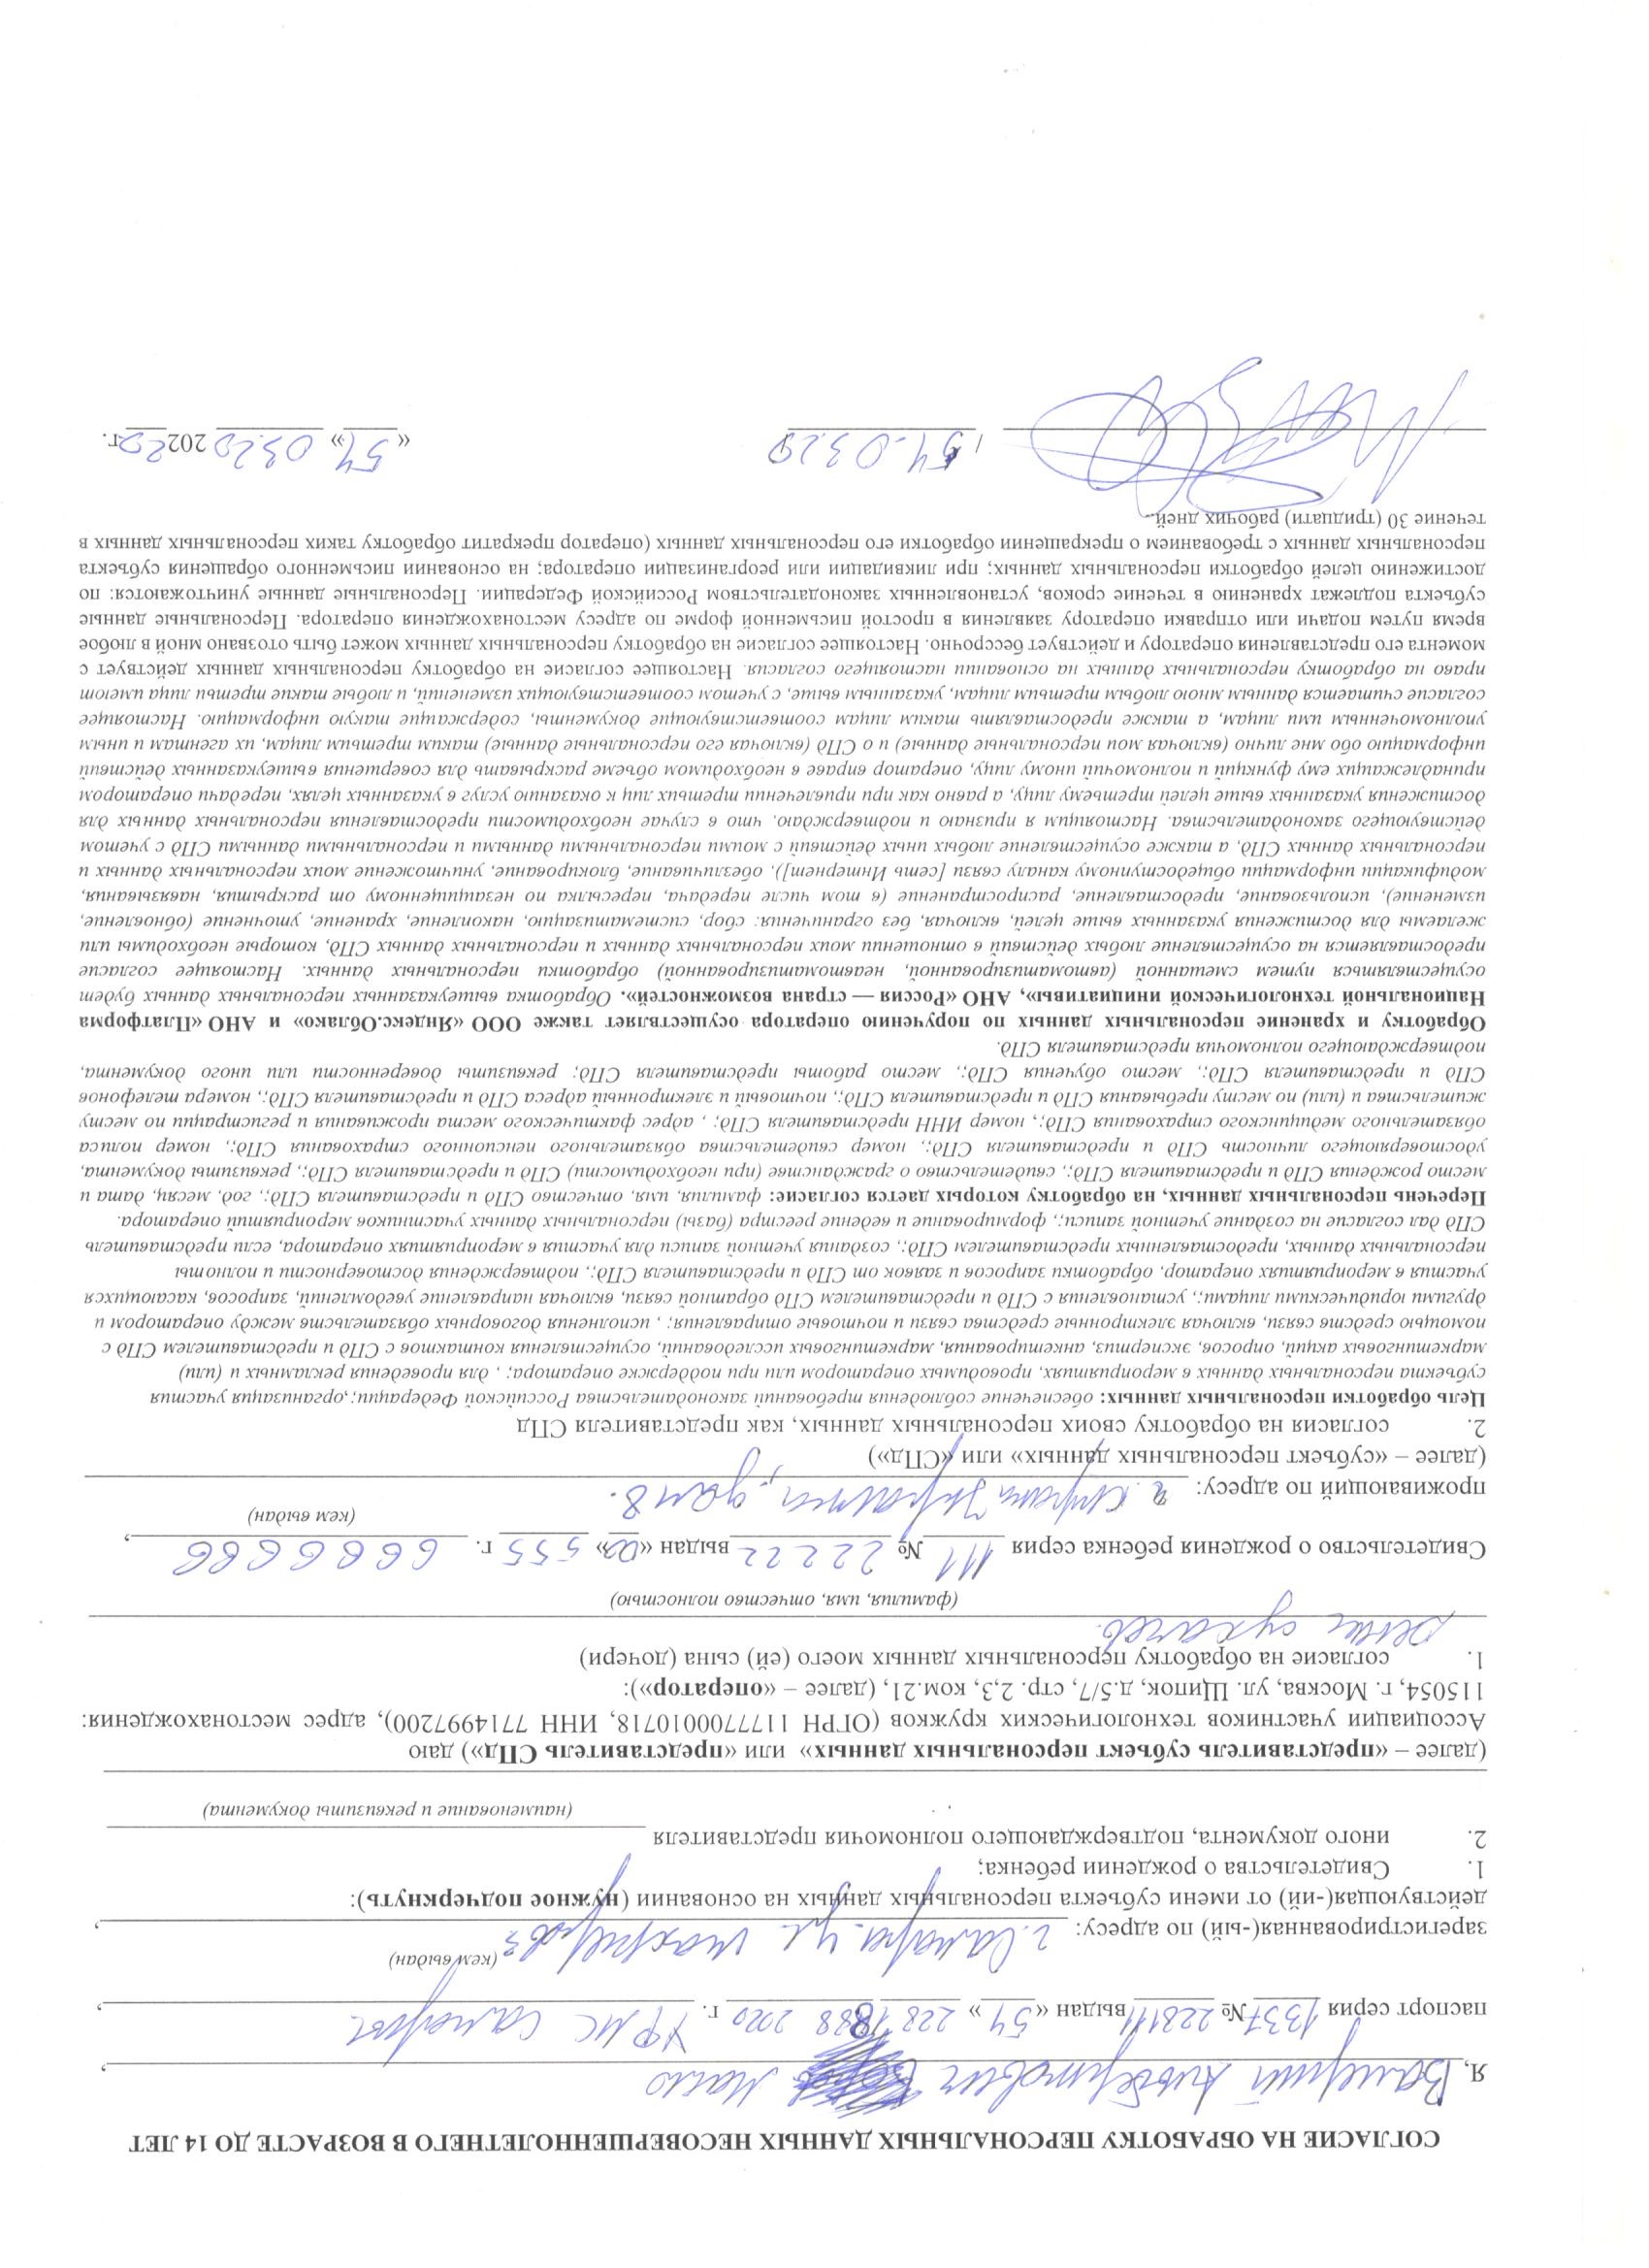 СОГЛАСИЕ НА ОБРАБОТКУ ПЕРСОНАЛЬНЫХ ДАННЫХ НЕСОВЕРШЕННОЛЕТНЕГО В ВОЗРАСТЕ ДО 14 ЛЕТ
Я, Валерий Альбертович Мало ,
паспорт серия 1337 № 228111 выдан «54» 228 1888 2020 г. УФМС Самары ,
(кем выдан)
зарегистрированная(-ый) по адресу: г. Самара ул. ,
действующая(-ий) от имени субъекта персональных данных на основании (нужное подчеркнуть):
1. Свидетельства о рождении ребенка;
2. иного документа, подтверждающего полномочия представителя
(наименование и реквизиты документа)
(далее – «представитель субъект персональных данных» или «представитель СПд») даю
Ассоциации участников технологических кружков (ОГРН 1177700010718, ИНН 7714997200), адрес местонахождения:
115054, г. Москва, ул. Щипок, д.5/7, стр. 2,3, ком.21, (далее – «оператор»):
1. согласие на обработку персональных данных моего (ей) сына (дочери)
сухачев.
(фамилия, имя, отчество полностью)
Свидетельство о рождения ребенка серия 111 № 22222 выдан «03» 555 г. 6666666 ,
(кем выдан)
проживающий по адресу: дом 8.
(далее – «субъект персональных данных» или «СПд»)
2. согласия на обработку своих персональных данных, как представителя СПд
Цель обработки персональных данных: обеспечение соблюдения требований законодательства Российской Федерации; ,организация участия
субъекта персональных данных в мероприятиях, проводимых оператором или при поддержке оператора; , для проведения рекламных и (или)
маркетинговых акций, опросов, экспертиз, анкетирования, маркетинговых исследований, осуществления контактов с СПд и представителем СПд с
помощью средств связи, включая электронные средства связи и почтовые отправления; , исполнения договорных обязательств между оператором и
другими юридическими лицами;, установления с СПд и представителем СПд обратной связи, включая направление уведомлений, запросов, касающихся
участия в мероприятиях оператор, обработки запросов и заявок от СПд и представителя СПд;, подтверждения достоверности и полноты
персональных данных, предоставленных представителем СПд;, создания учетной записи для участия в мероприятиях оператора, если представитель
СПд дал согласие на создание учетной записи;, формирование и ведение реестра (базы) персональных данных участников мероприятий оператора.
Перечень персональных данных, на обработку которых дается согласие: фамилия, имя, отчество СПд и представителя СПд;, год, месяц, дата и
место рождения СПд и представителя СПд;, свидетельство о гражданстве (при необходимости) СПд и представителя СПд;, реквизиты документа,
удостоверяющего личность СПд и представителя СПд;, номер свидетельства обязательного пенсионного страхования СПд;, номер полиса
обязательного медицинского страхования СПд;, номер ИНН представителя СПд; , адрес фактического места проживания и регистрации по месту
жительства и (или) по месту пребывания СПд и представителя СПд;, почтовый и электронный адреса СПд и представителя СПд;, номера телефонов
СПд и представителя СПд;, место обучения СПд;, место работы представителя СПд; реквизиты доверенности или иного документа,
подтверждающего полномочия представителя СПд.
Обработку и хранение персональных данных по поручению оператора осуществляет также ООО «Яндекс.Облако» и АНО «Платформа
Национальной технологической инициативы», АНО «Россия — страна возможностей». Обработка вышеуказанных персональных данных будет
осуществляться путем смешанной (автоматизированной, неавтоматизированной) обработки персональных данных. Настоящее согласие
предоставляется на осуществление любых действий в отношении моих персональных данных и персональных данных СПд, которые необходимы или
желаемы для достижения указанных выше целей, включая, без ограничения: сбор, систематизацию, накопление, хранение, уточнение (обновление,
изменение), использование, предоставление, распространение (в том числе передача, пересылка по незащищенному от раскрытия, навязывания,
модификации информации общедоступному каналу связи [сеть Интернет]), обезличивание, блокирование, уничтожение моих персональных данных и
персональных данных СПд, а также осуществление любых иных действий с моими персональными данными и персональными данными СПд с учетом
действующего законодательства. Настоящим я признаю и подтверждаю, что в случае необходимости предоставления персональных данных для
достижения указанных выше целей третьему лицу, а равно как при привлечении третьих лиц к оказанию услуг в указанных целях, передачи оператором
принадлежащих ему функций и полномочий иному лицу, оператор вправе в необходимом объеме раскрывать для совершения вышеуказанных действий
информацию обо мне лично (включая мои персональные данные) и о СПд (включая его персональные данные) таким третьим лицам, их агентам и иным
уполномоченным ими лицам, а также предоставлять таким лицам соответствующие документы, содержащие такую информацию. Настоящее
согласие считается данным мною любым третьим лицам, указанным выше, с учетом соответствующих изменений, и любые такие третьи лица имеют
право на обработку персональных данных на основании настоящего согласия. Настоящее согласие на обработку персональных данных действует с
момента его представления оператору и действует бессрочно. Настоящее согласие на обработку персональных данных может быть отозвано мной в любое
время путем подачи или отправки оператору заявления в простой письменной форме по адресу местонахождения оператора. Персональные данные
субъекта подлежат хранению в течение сроков, установленных законодательством Российской Федерации. Персональные данные уничтожаются: по
достижению целей обработки персональных данных; при ликвидации или реорганизации оператора; на основании письменного обращения субъекта
персональных данных с требованием о прекращении обработки его персональных данных (оператор прекратит обработку таких персональных данных в
течение 30 (тридцати) рабочих дней.
/ 54.03.20 «54» 03.20 2022 г.